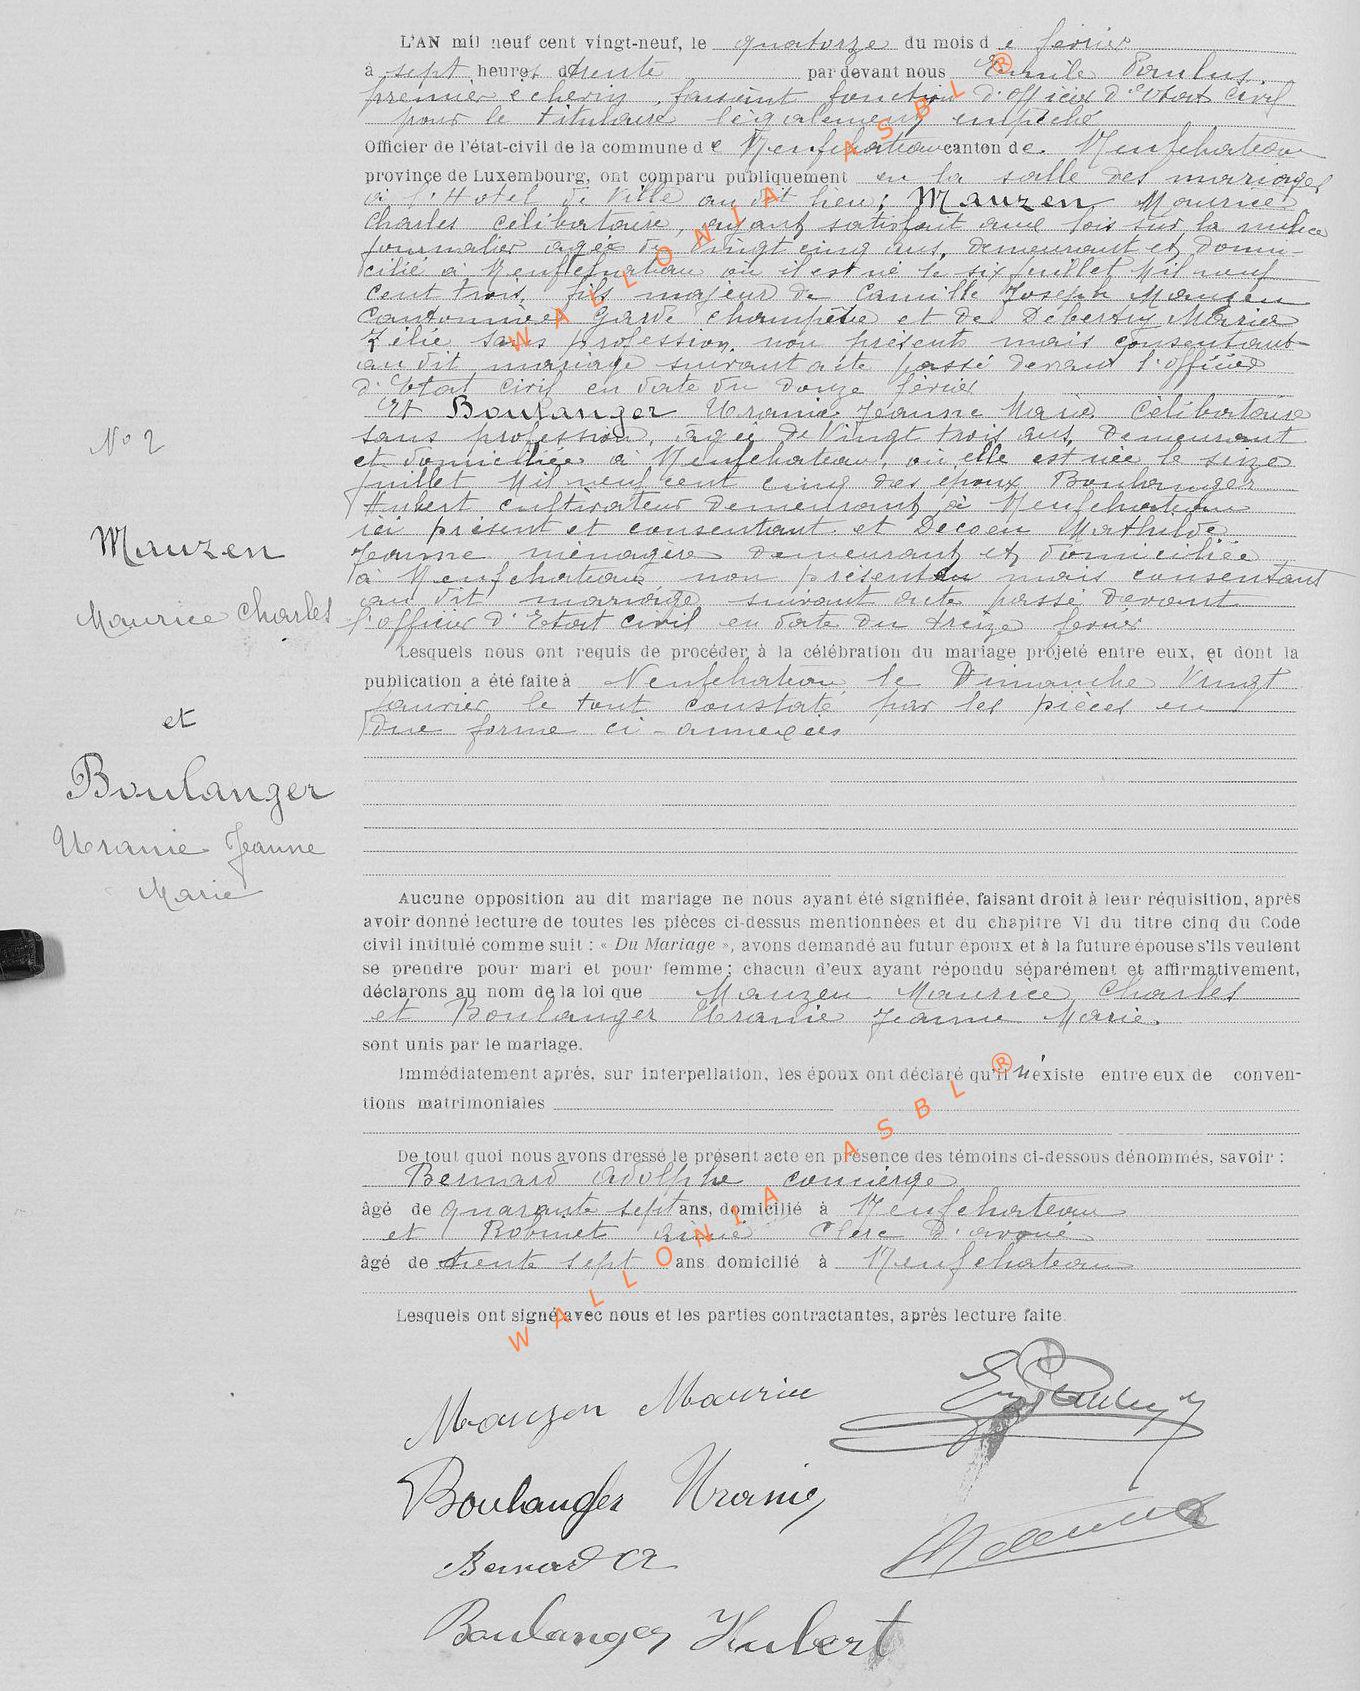 L'AN mil neuf cent vingt-neuf, le quatorze du mois de février
à sept heures trente par devant nous Emile Paulus,
premier échevin, faisant fonction d'officier d'Etat Civil
pour le titulaire légalement empêché
Officier de l'état-civil de la commune de Neufchateau canton de Neufchateau
province de Luxembourg, ont comparu publiquement en la salle des mariages
à l'Hotel de Ville au dit lieu; Mauzen Maurice
Charles célibataire, ayant satisfait aux lois sur la milice
journalier agée de vingt cinq ans, demeurant et domi-
cilié à Neufchateau où il est né le six juillet Mil neuf
cent trois, fils majeur de Camille Joseph Mauzen
cantonnier Garde Champêtre et de Maria
Zélie sans profession, non présents mais consentant
au dit mariage suivant acte passé devant l'officier
d'Etat civil en date du douze février
Et Boulanger Uranie Jeanne Marie Célibataire
sans profession, agée de Vingt trois ans, demeurant
et domiciliée à Neufchateau, où elle est née le seize
juillet Mil neuf cent cinq des époux Boulanger
Hubert cultivateur demeurant à Neufchateau
ici présent et consentant et Decoen Mathilde
Jeanne ménagère demeurant et domiciliée
à Neufchateau non présent mais consentant
au dit mariage suivant acte passé devant
l'officier d'Etat civil en date du treize février
N° 2
Mauzen
Maurice Charles
et
Boulanger
Uranie Jeanne
Marie
Lesquels nous ont requis de procéder à la célébration du mariage projeté entre eux, et dont la
publication a été faite à Neufchateau le Dimanche Vingt
janvier le tout constaté par les pièces en
due forme ci-annexées
Aucune opposition au dit mariage ne nous ayant été signifiée, faisant droit à leur réquisition, après
avoir donné lecture de toutes les pièces ci-dessus mentionnées et du chapitre VI du titre cinq du Code
civil intitulé comme suit : « Du Mariage », avons demandé au futur époux et à la future épouse s'ils veulent
se prendre pour mari et pour femme; chacun d'eux ayant répondu séparément et affirmativement,
déclarons au nom de la loi que Mauzen Maurice Charles
et Boulanger Uranie Jeanne Marie.
sont unis par le mariage.
Immédiatement après, sur interpellation, les époux ont déclaré qu'il n'existe entre eux de conven-
tions matrimoniales
De tout quoi nous avons dressé le présent acte en présence des témoins ci-dessous dénommés, savoir :
Bernard Adolphe concierge
âgé de quarante sept ans, domicilié à Neufchateau
et Robinet Aimé Clerc d'avoué
âgé de trente sept ans domicilié à Neufchateau
Lesquels ont signé avec nous et les parties contractantes, après lecture faite.
Mauzen Maurice
Em Paulus
Boulanger Uranie
Bernard A
Boulanger Hubert
WALLONIA ASBL ®
WALLONIA ASBL ®